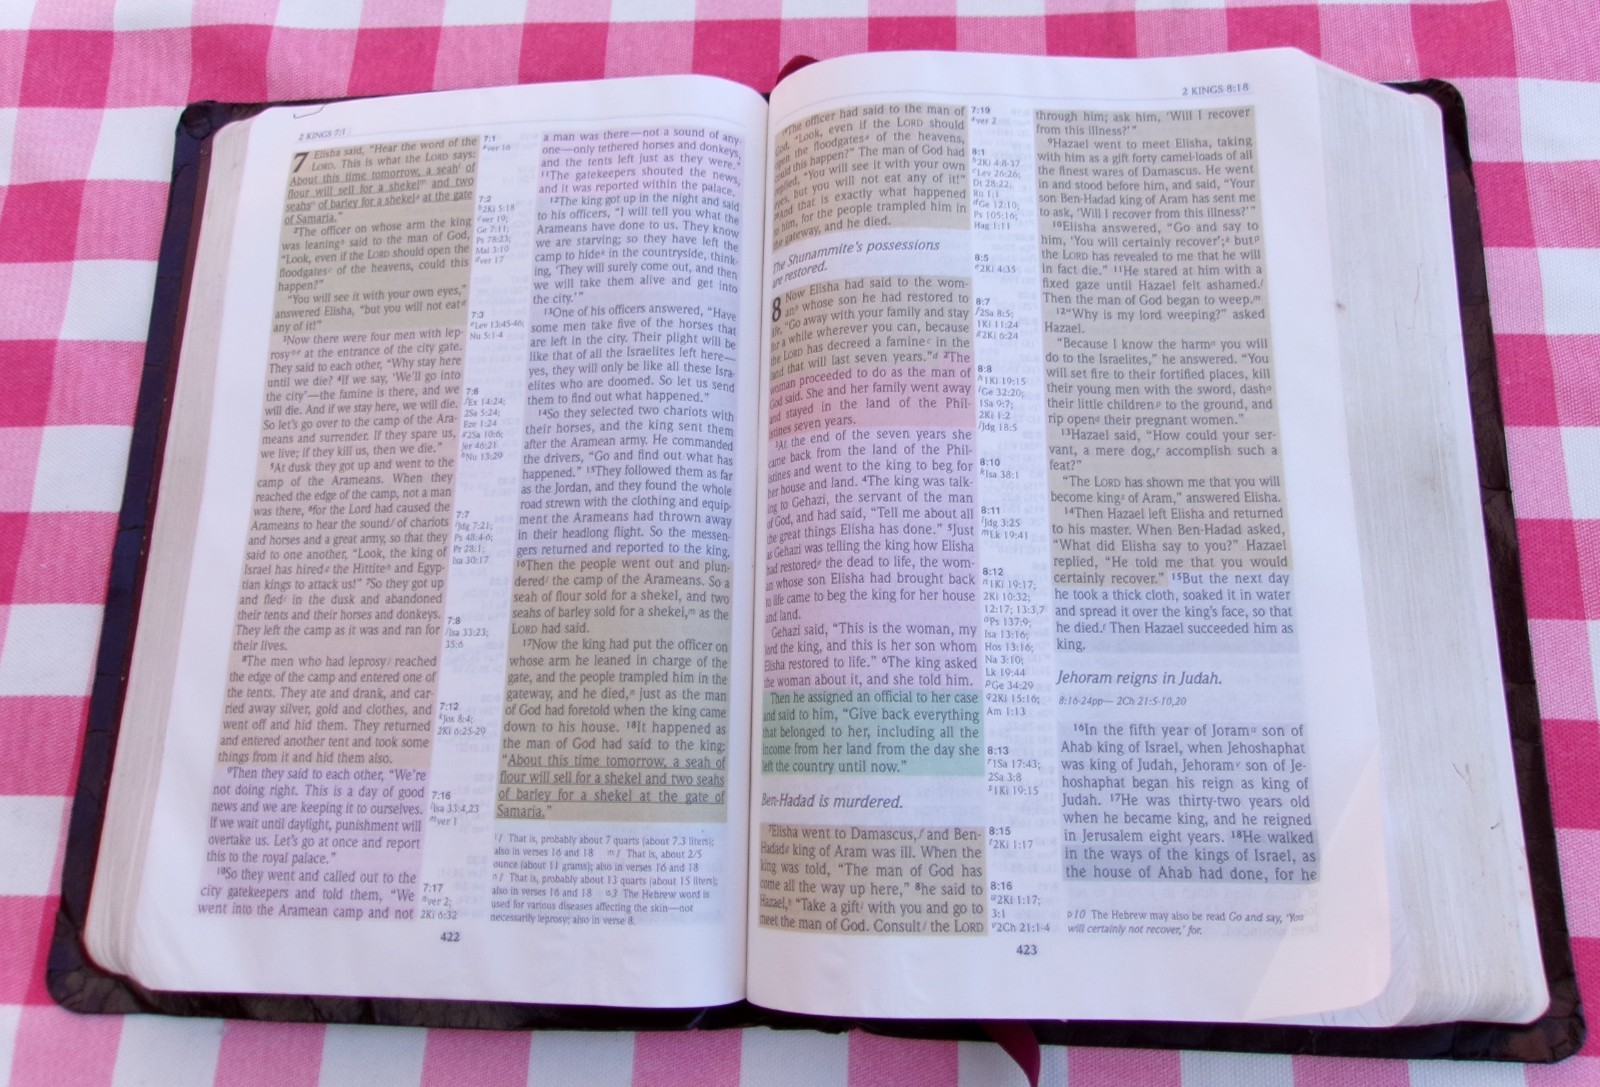 2 KINGS 7:1
7 Elisha said, "Hear the word of the
LORD. This is what the LORD says:
About this time tomorrow, a seahˡ of
flour will sell for a shekelᵐ and two
seahsⁿ of barley for a shekelᵃ at the gate
of Samaria."
²The officer on whose arm the king
was leaningᵇ said to the man of God,
"Look, even if the LORD should open the
floodgatesᶜ of the heavens, could this
happen?"
"You will see it with your own eyes,"
answered Elisha, "but you will not eatᵈ
any of it!"
³Now there were four men with lep-
rosyᵒᵉ at the entrance of the city gate.
They said to each other, "Why stay here
until we die? ⁴If we say, 'We'll go into
the city'—the famine is there, and we
will die. And if we stay here, we will die.
So let's go over to the camp of the Ara-
means and surrender. If they spare us,
we live; if they kill us, then we die."
⁵At dusk they got up and went to the
camp of the Arameans. When they
reached the edge of the camp, not a man
was there, ⁶for the Lord had caused the
Arameans to hear the soundᶠ of chariots
and horses and a great army, so that they
said to one another, "Look, the king of
Israel has hiredᵍ the Hittiteʰ and Egyp-
tian kings to attack us!" ⁷So they got up
and fledⁱ in the dusk and abandoned
their tents and their horses and donkeys.
They left the camp as it was and ran for
their lives.
⁸The men who had leprosyʲ reached
the edge of the camp and entered one of
the tents. They ate and drank, and car-
ried away silver, gold and clothes, and
went off and hid them. They returned
and entered another tent and took some
things from it and hid them also.
⁹Then they said to each other, "We're
not doing right. This is a day of good
news and we are keeping it to ourselves.
If we wait until daylight, punishment will
overtake us. Let's go at once and report
this to the royal palace."
¹⁰So they went and called out to the
city gatekeepers and told them, "We
went into the Aramean camp and not
7:1
ᵃver 16
7:2
ᵇ2Ki 5:18
ᶜver 19;
Ge 7:11;
Ps 78:23;
Mal 3:10
ᵈver 17
7:3
ᵉLev 13:45-46;
Nu 5:1-4
7:6
ᶠEx 14:24;
2Sa 5:24;
Eze 1:24
ᵍ2Sa 10:6;
Jer 46:21
ʰNu 13:29
7:7
ⁱJdg 7:21;
Ps 48:4-6;
Pr 28:1;
Isa 30:17
7:8
ʲIsa 33:23;
35:6
7:12
ᵏJos 8:4;
2Ki 6:25-29
7:16
ˡIsa 33:4,23
ᵐver 1
7:17
ⁿver 2;
2Ki 6:32
a man was there—not a sound of any-
one—only tethered horses and donkeys,
and the tents left just as they were."
¹¹The gatekeepers shouted the news,
and it was reported within the palace.
¹²The king got up in the night and said
to his officers, "I will tell you what the
Arameans have done to us. They know
we are starving; so they have left the
camp to hideᵏ in the countryside, think-
ing, 'They will surely come out, and then
we will take them alive and get into
the city.'"
¹³One of his officers answered, "Have
some men take five of the horses that
are left in the city. Their plight will be
like that of all the Israelites left here—
yes, they will only be like all these Isra-
elites who are doomed. So let us send
them to find out what happened."
¹⁴So they selected two chariots with
their horses, and the king sent them
after the Aramean army. He commanded
the drivers, "Go and find out what has
happened." ¹⁵They followed them as far
as the Jordan, and they found the whole
road strewn with the clothing and equip-
ment the Arameans had thrown away
in their headlong flight. So the messen-
gers returned and reported to the king.
¹⁶Then the people went out and plun-
deredˡ the camp of the Arameans. So a
seah of flour sold for a shekel, and two
seahs of barley sold for a shekel,ᵐ as the
LORD had said.
¹⁷Now the king had put the officer on
whose arm he leaned in charge of the
gate, and the people trampled him in the
gateway, and he died,ⁿ just as the man
of God had foretold when the king came
down to his house. ¹⁸It happened as
the man of God had said to the king:
"About this time tomorrow, a seah of
flour will sell for a shekel and two seahs
of barley for a shekel at the gate of
Samaria."
l1 That is, probably about 7 quarts (about 7.3 liters);
also in verses 16 and 18 m1 That is, about 2/5
ounce (about 11 grams); also in verses 16 and 18
n1 That is, probably about 13 quarts (about 15 liters);
also in verses 16 and 18 o3 The Hebrew word is
used for various diseases affecting the skin—not
necessarily leprosy; also in verse 8.
422
2 KINGS 8:18
¹⁹The officer had said to the man of
God, "Look, even if the LORD should
open the floodgatesᵒ of the heavens,
could this happen?" The man of God had
replied, "You will see it with your own
eyes, but you will not eat any of it!"
²⁰And that is exactly what happened
to him, for the people trampled him in
the gateway, and he died.
The Shunammite's possessions
are restored.
8 Now Elisha had said to the wom-
anᵖ whose son he had restored to
life, "Go away with your family and stay
for a while wherever you can, because
the LORD has decreed a famineᶜ in the
land that will last seven years."ᵈ ²The
woman proceeded to do as the man of
God said. She and her family went away
and stayed in the land of the Phil-
istines seven years.
³At the end of the seven years she
came back from the land of the Phil-
istines and went to the king to beg for
her house and land. ⁴The king was talk-
ing to Gehazi, the servant of the man
of God, and had said, "Tell me about all
the great things Elisha has done." ⁵Just
as Gehazi was telling the king how Elisha
had restoredᵉ the dead to life, the wom-
an whose son Elisha had brought back
to life came to beg the king for her house
and land.
Gehazi said, "This is the woman, my
lord the king, and this is her son whom
Elisha restored to life." ⁶The king asked
the woman about it, and she told him.
Then he assigned an official to her case
and said to him, "Give back everything
that belonged to her, including all the
income from her land from the day she
left the country until now."
Ben-Hadad is murdered.
⁷Elisha went to Damascus,ᶠ and Ben-
Hadadᵍ king of Aram was ill. When the
king was told, "The man of God has
come all the way up here," ⁸he said to
Hazael,ʰ "Take a giftⁱ with you and go to
meet the man of God. Consultʲ the LORD
7:19
ᵃver 2
8:1
ᵇ2Ki 4:8-37
ᶜLev 26:26;
Dt 28:22;
Ru 1:1
ᵈGe 12:10;
Ps 105:16;
Hag 1:11
8:5
ᵉ2Ki 4:35
8:7
ᶠ2Sa 8:5;
1Ki 11:24
ᵍ2Ki 6:24
8:8
ʰ1Ki 19:15
ⁱGe 32:20;
1Sa 9:7;
2Ki 1:2
ʲJdg 18:5
8:10
ᵏIsa 38:1
8:11
ˡJdg 3:25
ᵐLk 19:41
8:12
ⁿ1Ki 19:17;
2Ki 10:32;
12:17; 13:3,7
ᵒPs 137:9;
Isa 13:16;
Hos 13:16;
Na 3:10;
Lk 19:44
ᵖGe 34:29
ᑫ2Ki 15:16;
Am 1:13
8:13
ʳ1Sa 17:43;
2Sa 3:8
ˢ1Ki 19:15
8:15
ᵗ2Ki 1:17
8:16
ᵘ2Ki 1:17;
3:1
ᵛ2Ch 21:1-4
through him; ask him, 'Will I recover
from this illness?'"
⁹Hazael went to meet Elisha, taking
with him as a gift forty camel-loads of all
the finest wares of Damascus. He went
in and stood before him, and said, "Your
son Ben-Hadad king of Aram has sent me
to ask, 'Will I recover from this illness?'"
¹⁰Elisha answered, "Go and say to
him, 'You will certainly recover';ᵏ butᵖ
the LORD has revealed to me that he will
in fact die." ¹¹He stared at him with a
fixed gaze until Hazael felt ashamed.ˡ
Then the man of God began to weep.ᵐ
¹²"Why is my lord weeping?" asked
Hazael.
"Because I know the harmⁿ you will
do to the Israelites," he answered. "You
will set fire to their fortified places, kill
their young men with the sword, dashᵒ
their little childrenᵖ to the ground, and
rip openᑫ their pregnant women."
¹³Hazael said, "How could your ser-
vant, a mere dog,ʳ accomplish such a
feat?"
"The LORD has shown me that you will
become kingˢ of Aram," answered Elisha.
¹⁴Then Hazael left Elisha and returned
to his master. When Ben-Hadad asked,
"What did Elisha say to you?" Hazael
replied, "He told me that you would
certainly recover." ¹⁵But the next day
he took a thick cloth, soaked it in water
and spread it over the king's face, so that
he died.ᵗ Then Hazael succeeded him as
king.
Jehoram reigns in Judah.
8:16-24pp— 2Ch 21:5-10,20
¹⁶In the fifth year of Joramᵘ son of
Ahab king of Israel, when Jehoshaphat
was king of Judah, Jehoramᵛ son of Je-
hoshaphat began his reign as king of
Judah. ¹⁷He was thirty-two years old
when he became king, and he reigned
in Jerusalem eight years. ¹⁸He walked
in the ways of the kings of Israel, as
the house of Ahab had done, for he
p10 The Hebrew may also be read Go and say, 'You
will certainly not recover,' for.
423